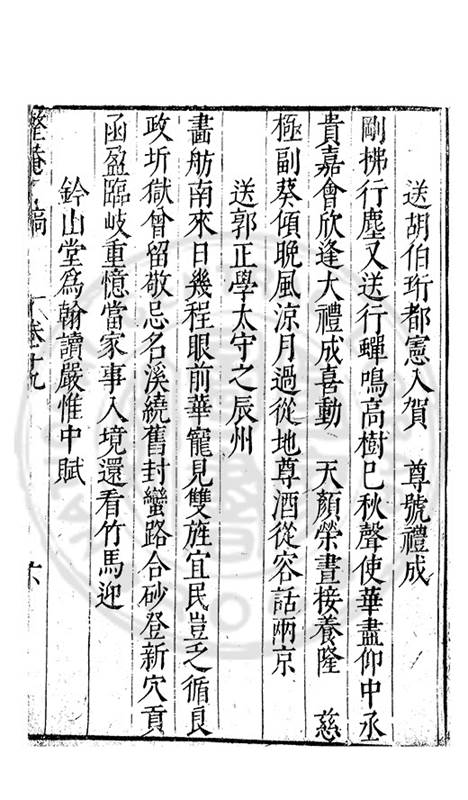 送胡伯珩都憲入賀　尊號禮成
剛拂行塵又送行蟬鳴高樹已秋聲使華盡仰中丞
貴嘉會欣逢大禮成喜動　天顏榮晝接養隆　慈
極副葵傾晚風涼月過從地尊酒從容話兩京
送郭正學太守之辰州
畵舫南來日幾程眼前華寵見雙旌宜民豈乏循良
政圻獄曾留敬忌名溪繞舊封蠻路合砂登新穴貢
函盈臨岐重憶當家事入境還看竹馬迎
鈐山堂爲翰讀嚴惟中賦
整菴
稿
卷十九